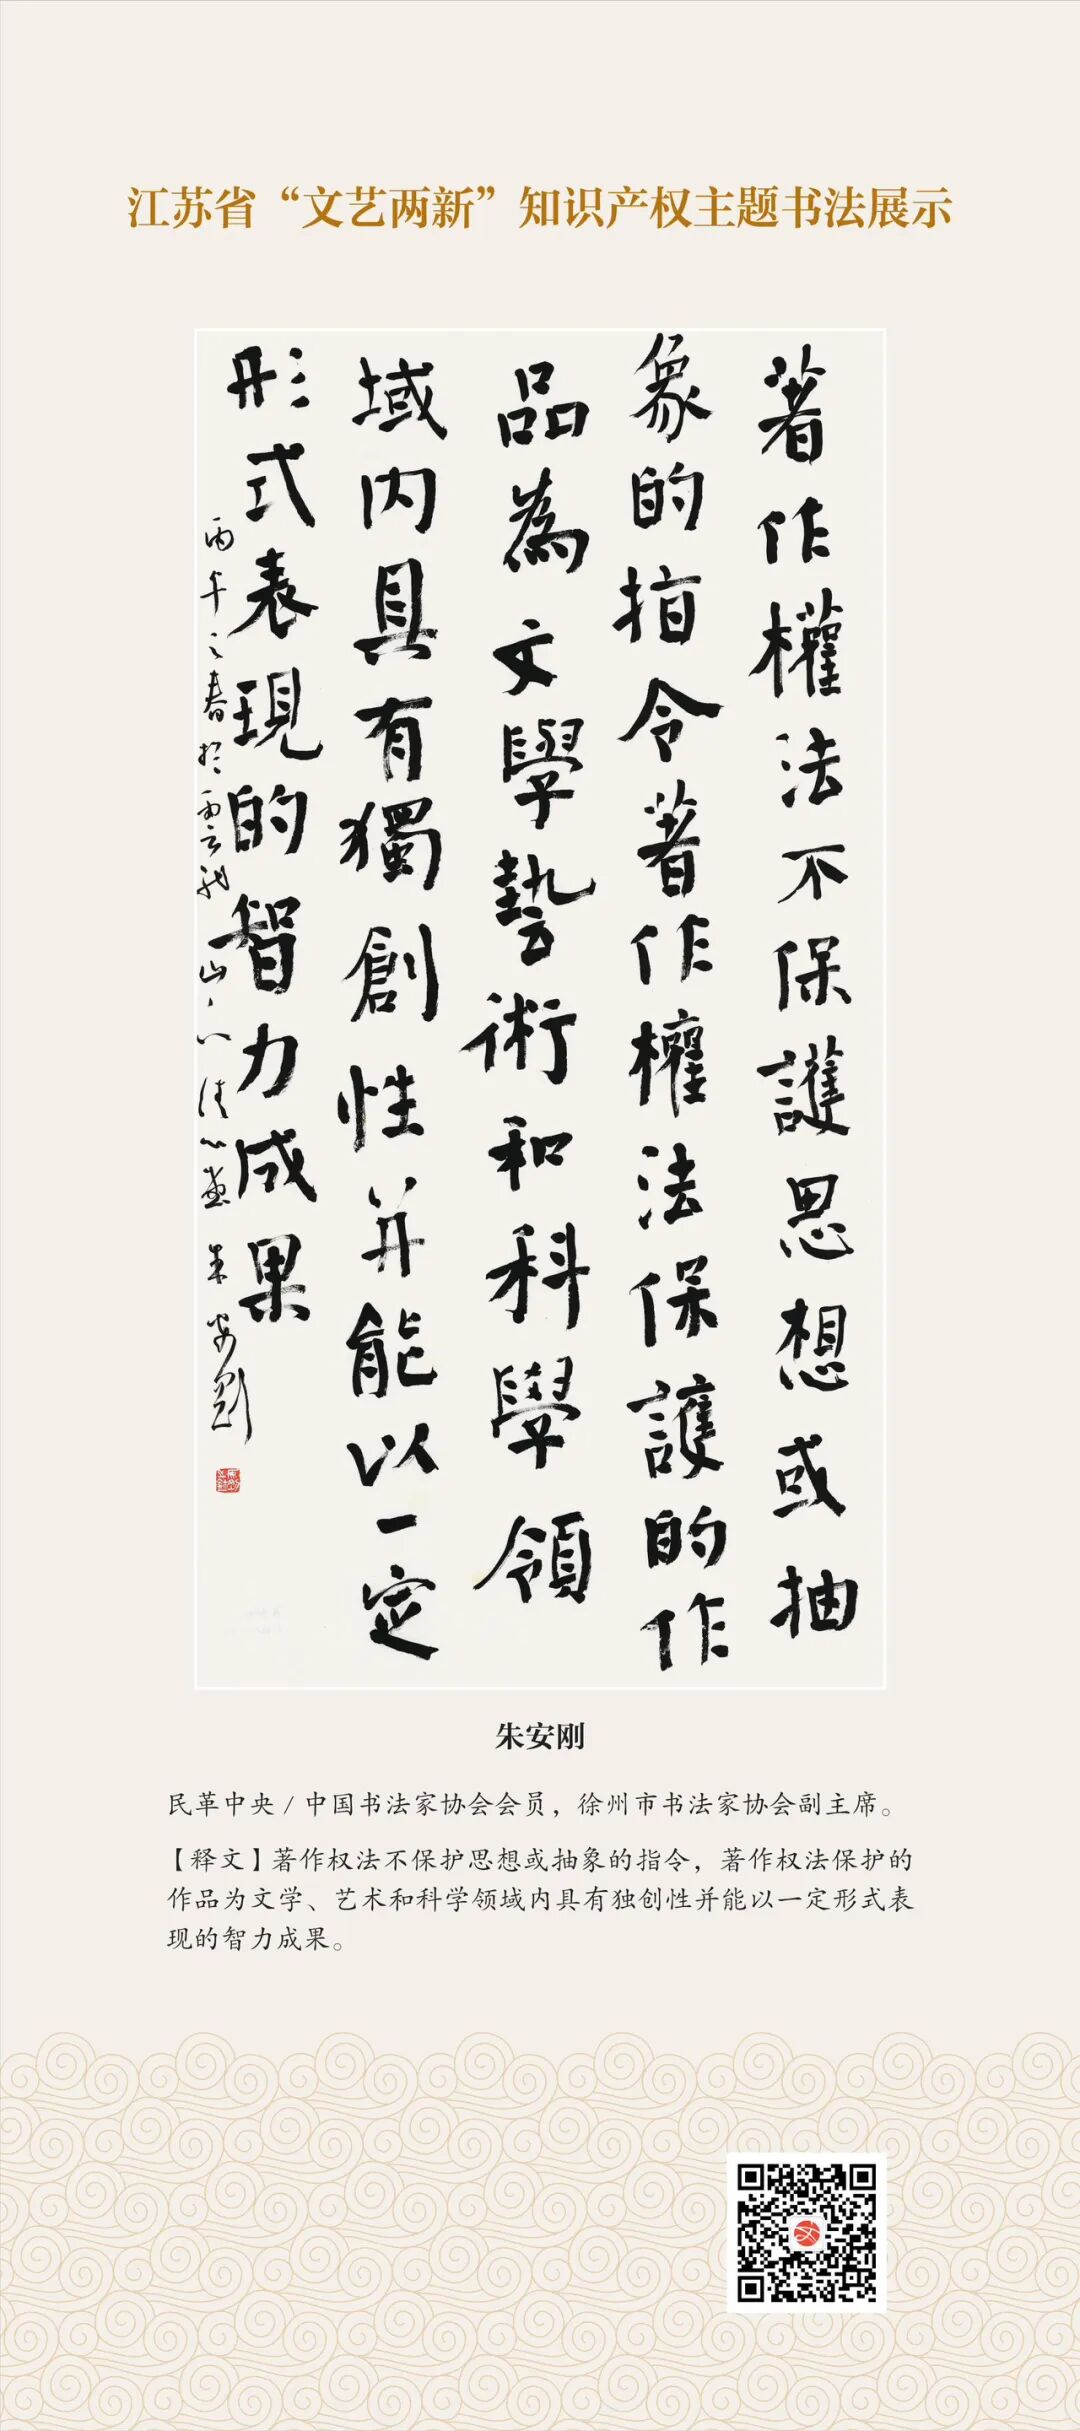 江苏省“文艺两新”知识产权主题书法展示
著作權法不保護思想或抽
象的指令著作權法保護的作
品為文學藝術和科學領
域内具有獨創性并能以一定
形式表現的智力成果
丙午之春於雲龍山人 朱安剛
朱安刚
民革中央 / 中国书法家协会会员，徐州市书法家协会副主席。
【释文】著作权法不保护思想或抽象的指令，著作权法保护的
作品为文学、艺术和科学领域内具有独创性并能以一定形式表
现的智力成果。